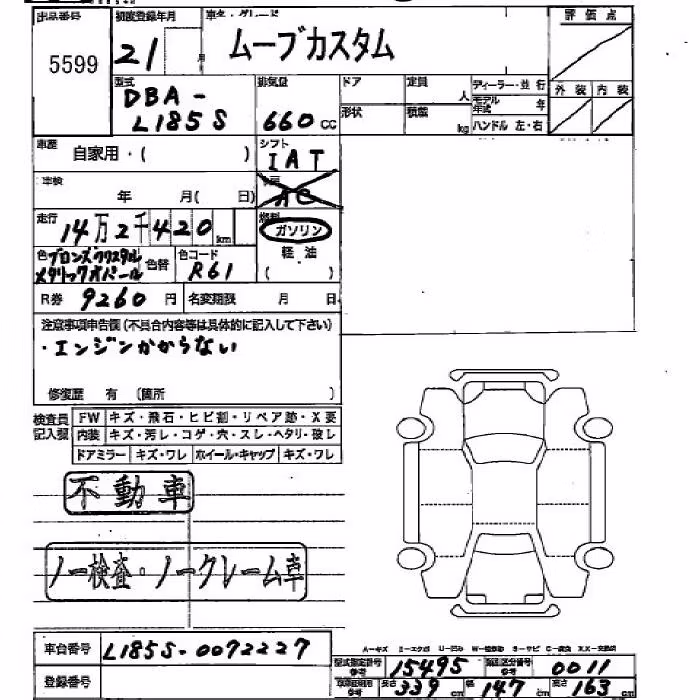 出品番号 初度登録年月 車名・グレード 評価点
5599 21 月 ムーブカスタム
型式 排気量 ドア 定員 人 ディーラー・並行 外装 内装
DBA- モデル年式 年
L185S 660cc 形状 積載 kg ハンドル 左・右
車歴 自家用・( ) シフト IAT
車検 年 月( 日) AC
走行 14万2千420km 燃料 ガソリン
色 ブロンズクリスタル 色替 色コード 軽油
メタリックオパール R61 ( )
R券 9260円 名変期限 月 日
注意事項申告欄(不具合内容等は具体的に記入して下さい)
・エンジンかからない
修復歴 有 (箇所 )
検査員 FW キズ・飛石・ヒビ割・リペア跡・X要
記入欄 内装 キズ・汚レ・コゲ・穴・スレ・ヘタリ・破レ
ドアミラー キズ・ワレ ホイール・キャップ キズ・ワレ
不動車
ノー検査・ノークレーム車
車台番号 L185S-0072227
登録番号
型式指定番号 参考 15495 類別区分番号 参考 0011
長さ 339cm 幅 147cm 高さ 163cm